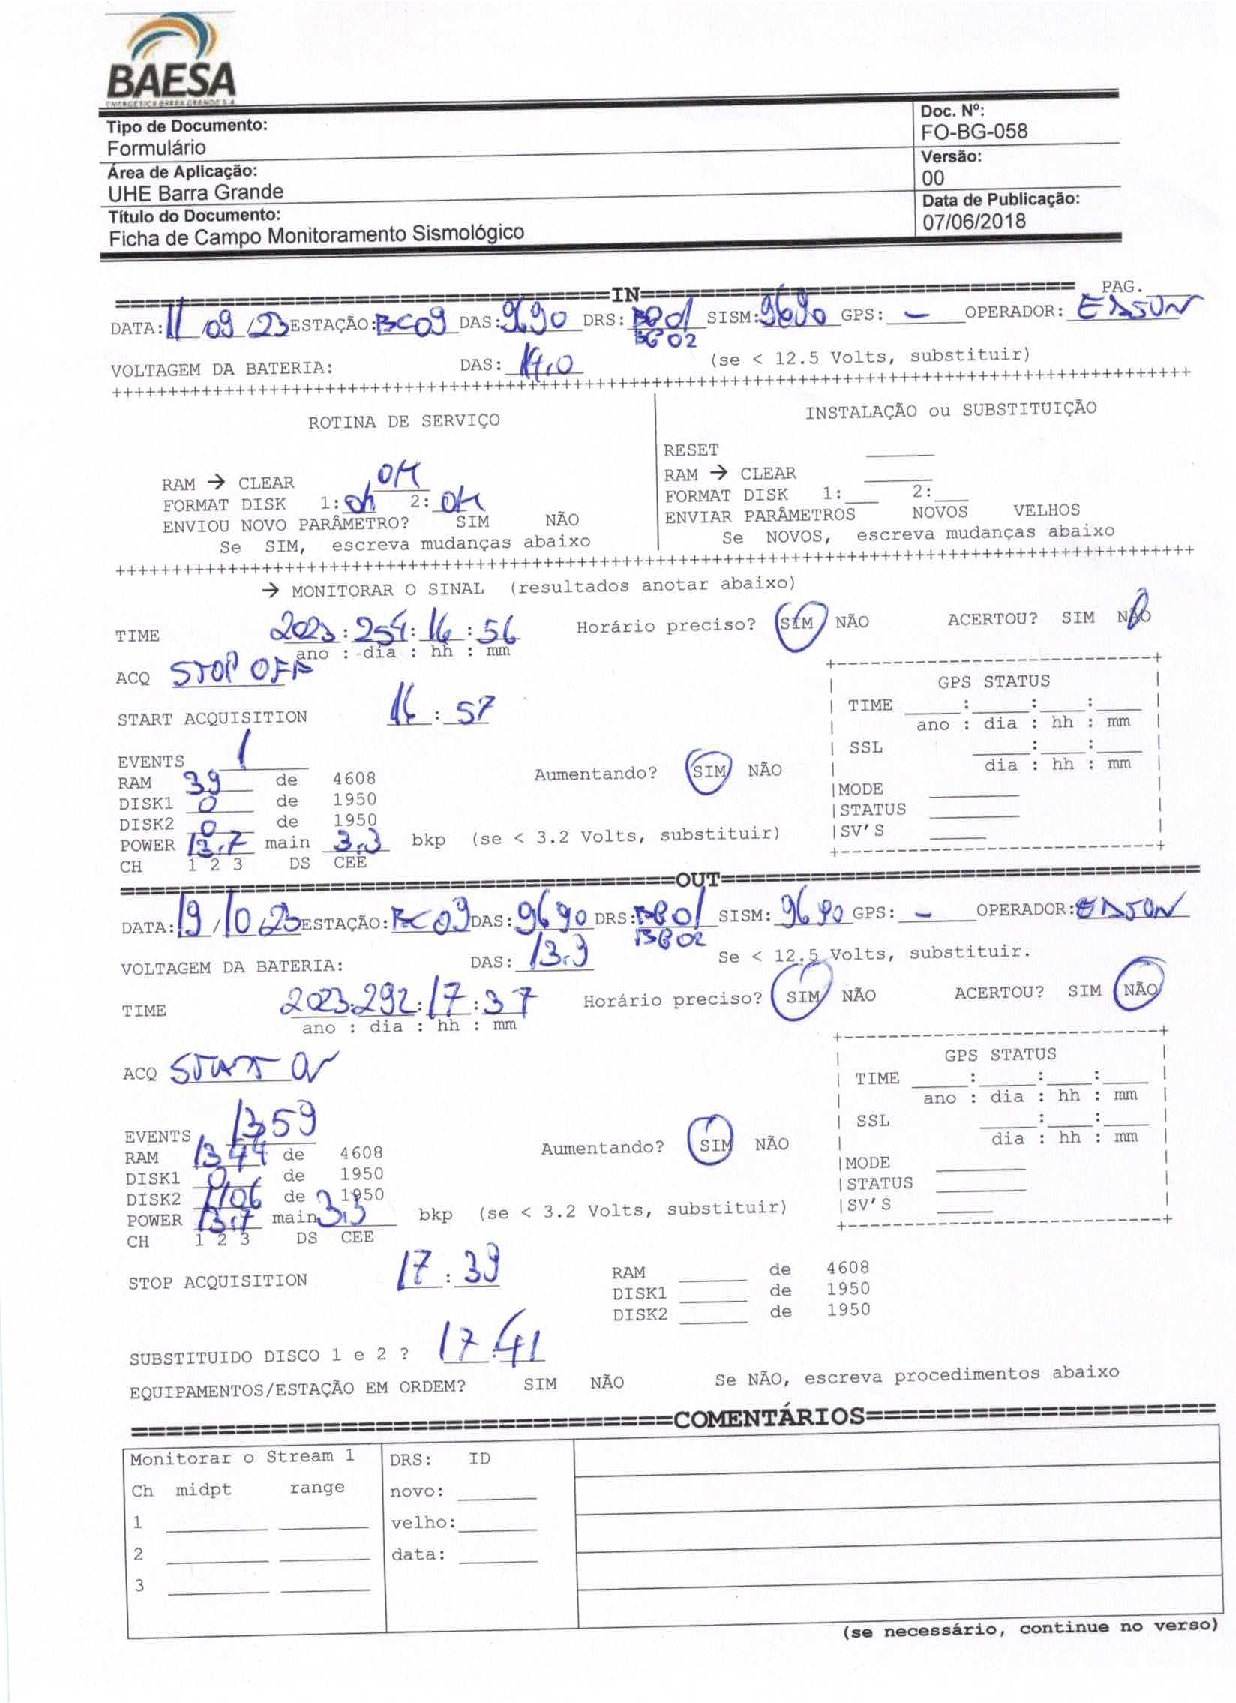 BAESA
ENERGÉTICA BARRA GRANDE S.A.
Tipo de Documento:
Formulário
Doc. Nº:
FO-BG-058
Área de Aplicação:
UHE Barra Grande
Versão:
00
Título do Documento:
Ficha de Campo Monitoramento Sismológico
Data de Publicação:
07/06/2018
==========IN========== PAG.
DATA: 11/09/23 ESTAÇÃO: BC09 DAS: 9690 DRS: BG01 SISM: 9690 GPS: - OPERADOR: EDSON
BG02
VOLTAGEM DA BATERIA: DAS: 14,0 (se < 12.5 Volts, substituir)
++++++++++
ROTINA DE SERVIÇO
RAM → CLEAR OK
FORMAT DISK 1: OK 2: OK
ENVIOU NOVO PARÂMETRO? SIM NÃO
Se SIM, escreva mudanças abaixo
INSTALAÇÃO ou SUBSTITUIÇÃO
RESET ____
RAM → CLEAR ____
FORMAT DISK 1:___ 2:___
ENVIAR PARÂMETROS NOVOS VELHOS
Se NOVOS, escreva mudanças abaixo
++++++++++
→ MONITORAR O SINAL (resultados anotar abaixo)
TIME 2023:254:16:56 Horário preciso? SIM NÃO ACERTOU? SIM NÃO
ano : dia : hh : mm
ACQ STOP OFF
START ACQUISITION 16:57
EVENTS 1
RAM 39 de 4608 Aumentando? SIM NÃO
DISK1 0 de 1950
DISK2 0 de 1950
POWER 13,7 main 3,3 bkp (se < 3.2 Volts, substituir)
CH 1 2 3 DS CEE
GPS STATUS
TIME ____:____:____:____
ano : dia : hh : mm
SSL ____:____:____
dia : hh : mm
MODE ____
STATUS ____
SV'S ____
==========OUT==========
DATA: 19/10/23 ESTAÇÃO: BC09 DAS: 9690 DRS: BG01 SISM: 9690 GPS: - OPERADOR: EDSON
BG02
VOLTAGEM DA BATERIA: DAS: 13,9 Se < 12.5 Volts, substituir.
TIME 2023:292:17:37 Horário preciso? SIM NÃO ACERTOU? SIM NÃO
ano : dia : hh : mm
ACQ START ON
EVENTS 1359
RAM 1344 de 4608 Aumentando? SIM NÃO
DISK1 0 de 1950
DISK2 1106 de 1950
POWER 13,7 main 3,3 bkp (se < 3.2 Volts, substituir)
CH 1 2 3 DS CEE
GPS STATUS
TIME ____:____:____:____
ano : dia : hh : mm
SSL ____:____:____
dia : hh : mm
MODE ____
STATUS ____
SV'S ____
STOP ACQUISITION 17:39
RAM ____ de 4608
DISK1 ____ de 1950
DISK2 ____ de 1950
SUBSTITUIDO DISCO 1 e 2 ? 17:41
EQUIPAMENTOS/ESTAÇÃO EM ORDEM? SIM NÃO Se NÃO, escreva procedimentos abaixo
==========COMENTÁRIOS==========
Monitorar o Stream 1
Ch midpt range
1 ____ ____
2 ____ ____
3 ____ ____
DRS: ID
novo: ____
velho: ____
data: ____
(se necessário, continue no verso)